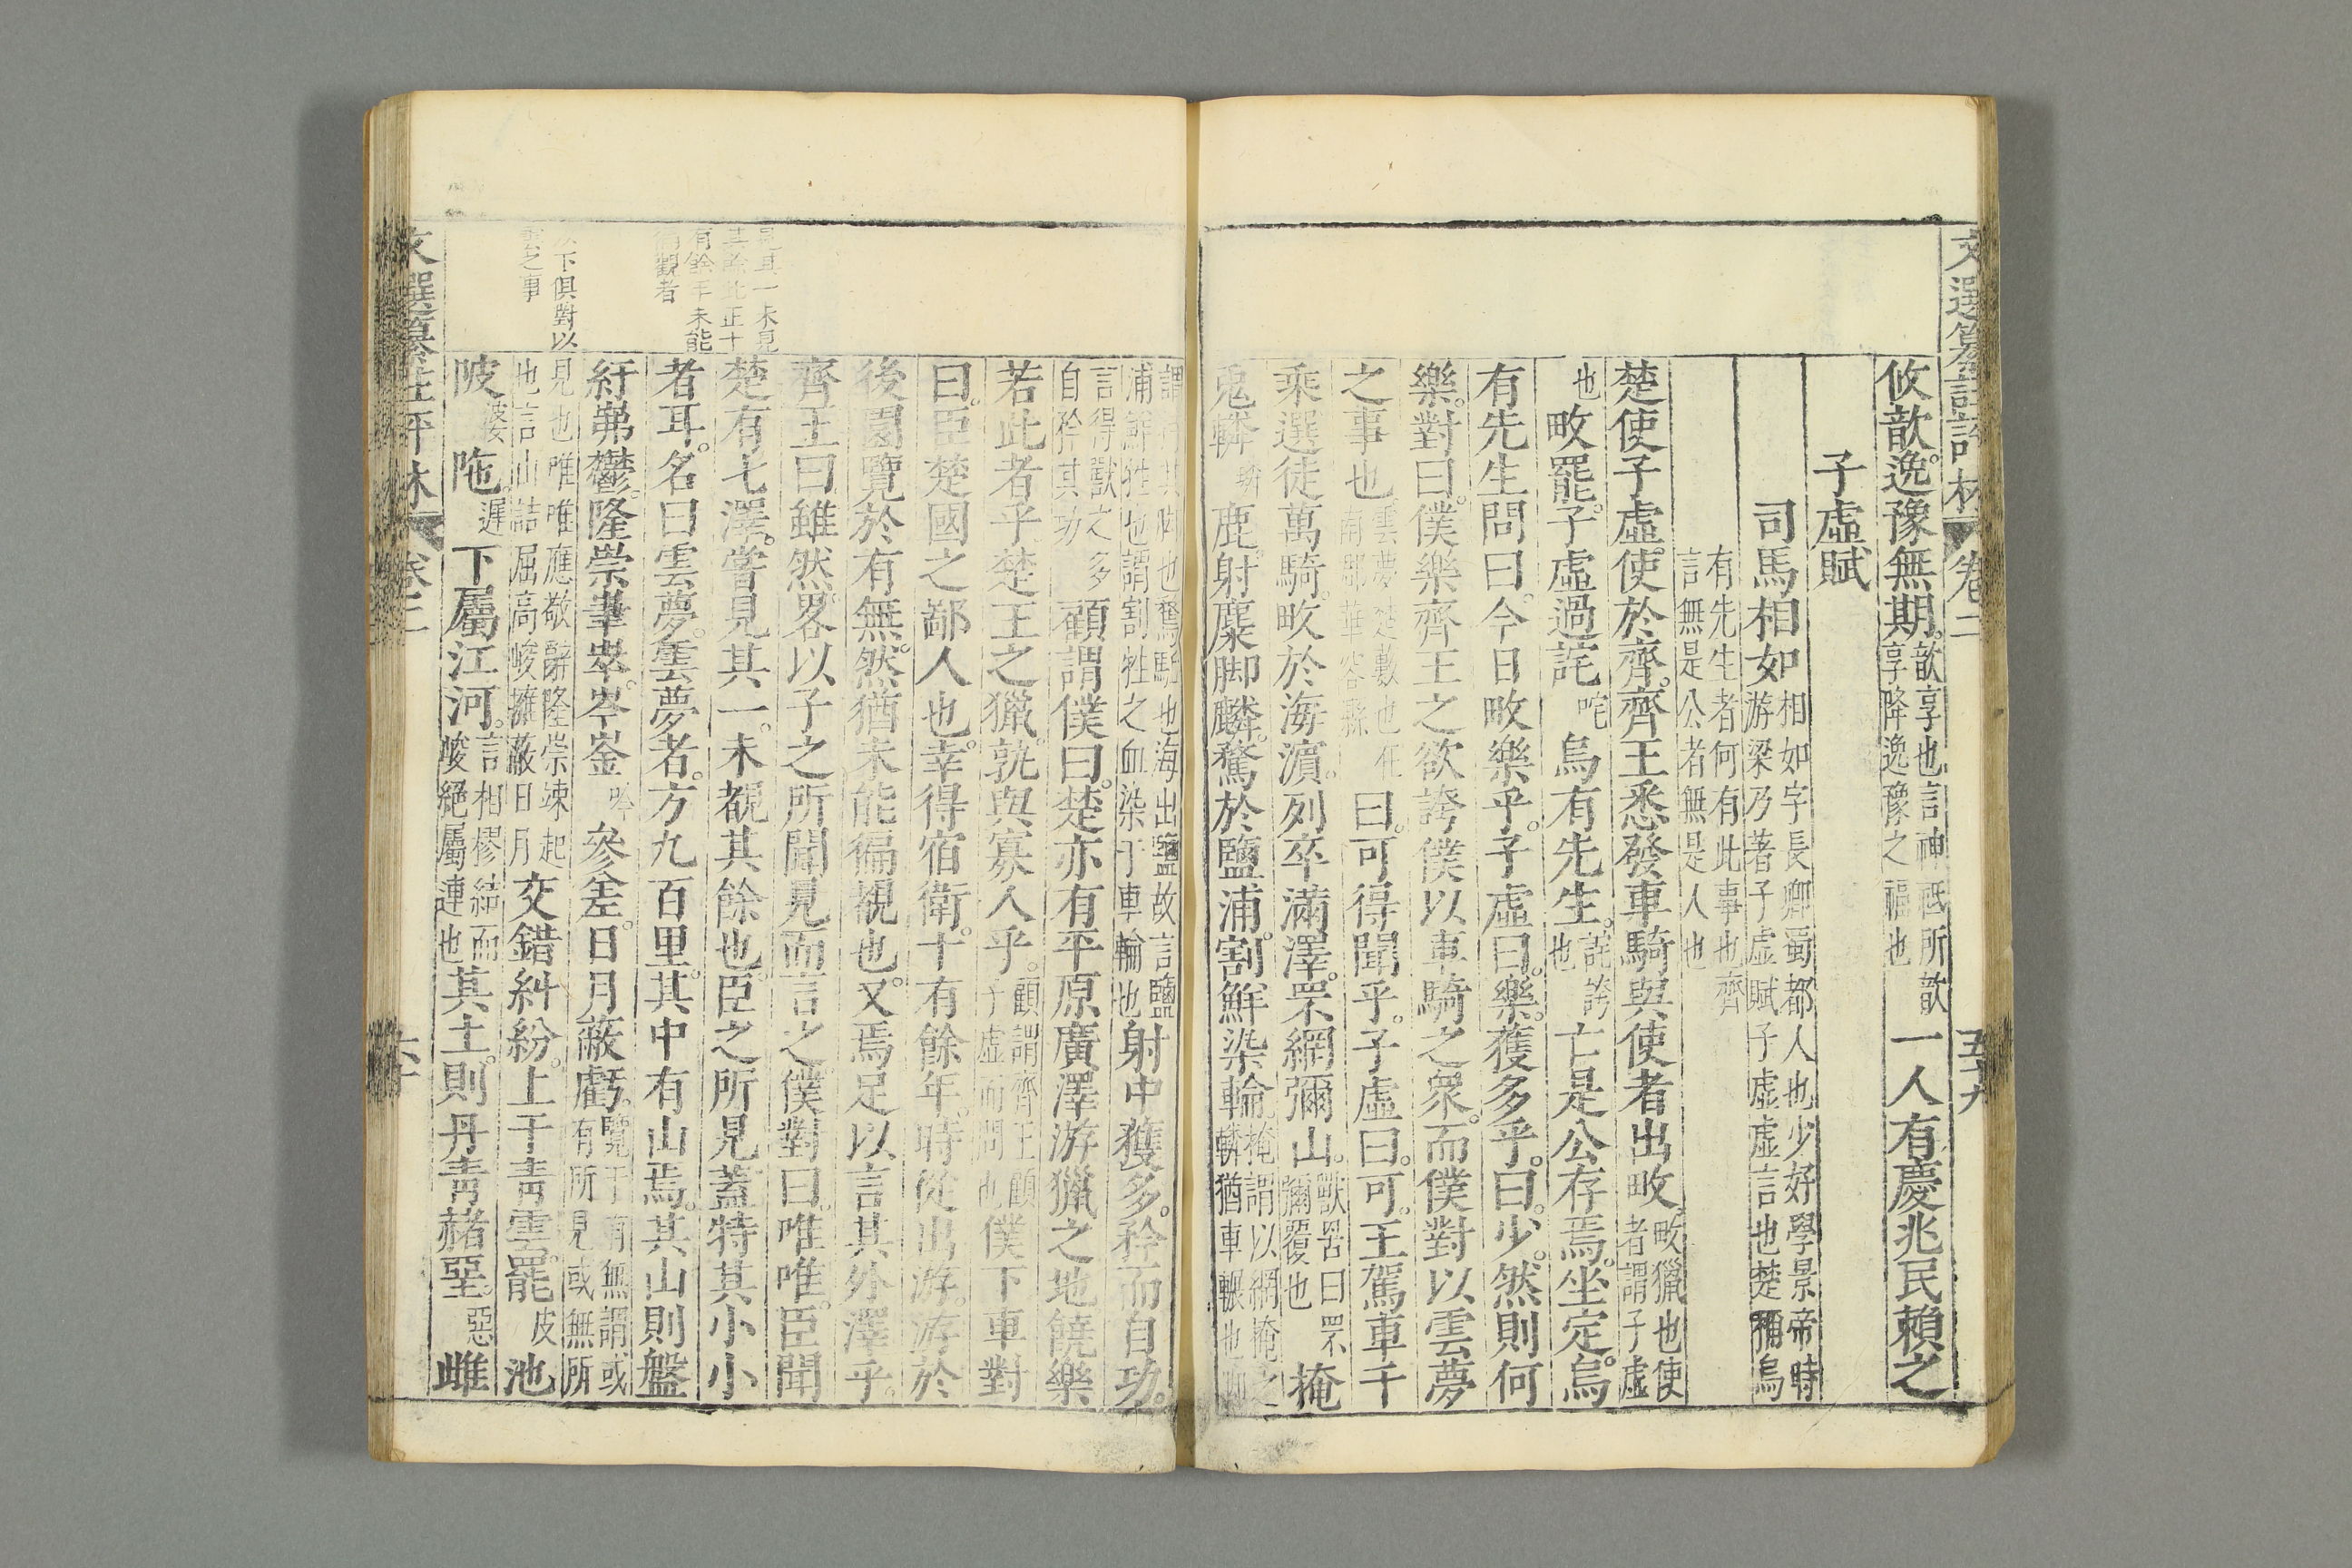 文選纂註評林 卷二 五十九
攸歆逸豫無期歆享也言神祗所歆享降逸豫之福也一人有慶兆民賴之
子虛賦
司馬相如相如字長卿蜀都人也少好學景帝時游梁乃著子虛賦子虛虛言也楚稱烏
有先生者何有此事也齊言無是公者無是人也
楚使子虛使於齊齊王悉發車騎與使者出畋畋獵也使者謂子虛
也畋罷子虛過詫咤烏有先生詫誇也亡是公存焉坐定烏
有先生問曰今日畋樂乎子虛曰樂獲多乎曰少然則何
樂對曰僕樂齊王之欲誇僕以車騎之衆而僕對以雲夢
之事也雲夢楚藪也在南郡華容縣曰可得聞乎子虛曰可王駕車千
乘選徒萬騎畋於海濱列卒滿澤罘網彌山獸罟曰罘彌覆也掩
兔轔鹿射麋脚麟騖於鹽浦割鮮染輪掩謂以網掩之轔猶車輾也脚
謂持其脚也騖馳也海出鹽故言鹽浦鮮牲也謂割牲之血染于車輪也射中獲多矜而自功
言得獸之多自矜其功顧謂僕曰楚亦有平原廣澤游獵之地饒樂
若此者乎楚王之獵孰與寡人乎顧謂齊王顧子虛而問也僕下車對
曰臣楚國之鄙人也幸得宿衛十有餘年時從出游游於
後園覽於有無然猶未能徧覩也又焉足以言其外澤乎
齊王曰雖然畧以子之所聞見而言之僕對曰唯唯臣聞
楚有七澤嘗見其一未覩其餘也臣之所見蓋特其小小
見其一未見其餘此正十有餘年未能徧觀者
者耳名曰雲夢雲夢者方九百里其中有山焉其山則盤
紆岪鬱隆崇嵂崒岑崟吟參差日月蔽虧覽于有無謂或有所見或無所
以下俱對以雲夢之事
見也唯唯應敬辭隆崇竦起也言山詰屈高峻擁蔽日月交錯糾紛上干青雲罷皮池
陂婆陁遲下屬江河言相樛結而峻絕屬連也其土則丹青赭堊惡雌
文選纂註評林 卷二 六十